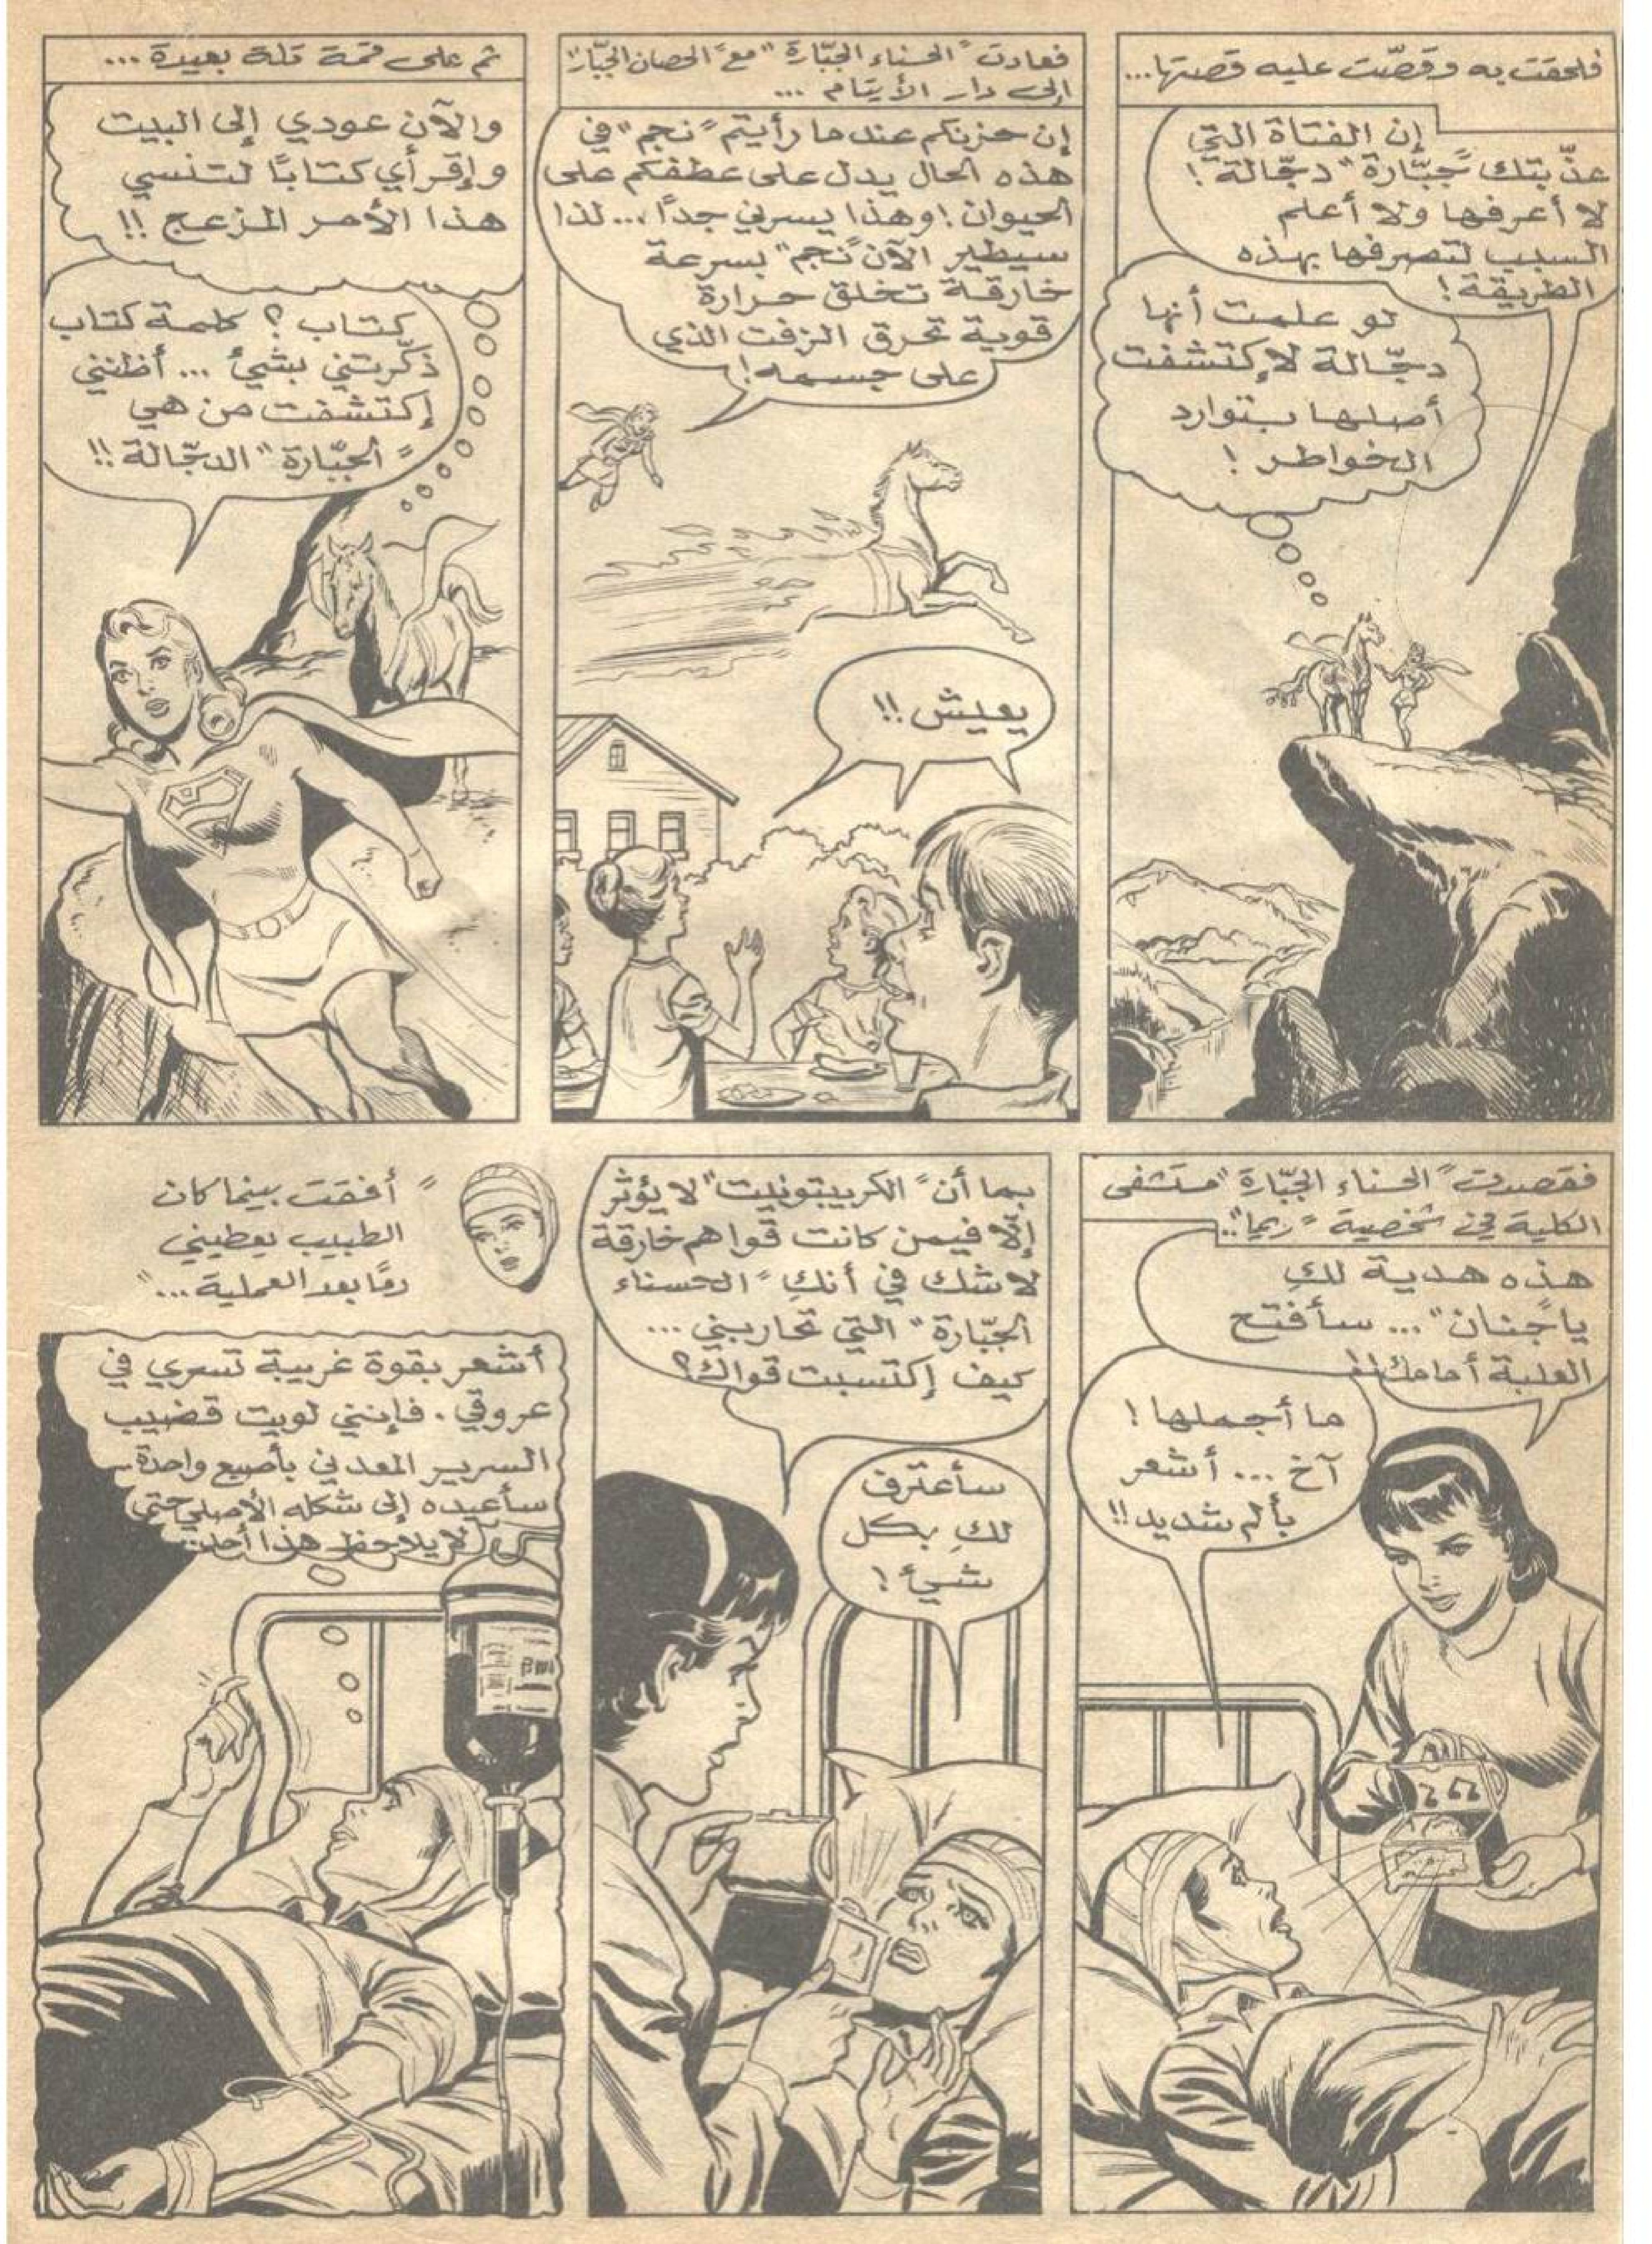 فلحقت به وقصّت عليه قصتها...
إن الفتاة التي
عذّبتك "جبّارة" دجّالة!
لا أعرفها ولا أعلم
السبب لتصرفها بهذه
الطريقة!
لو علمت أنها
دجّالة لإكتشفت
أصلها بتوارد
الخواطر!
فعادت "الحسناء الجبّارة" مع "الحصان الجبّار"
إلى دار الأيتام ...
إن حزنكم عندما رأيتم "نجم" في
هذه الحال يدل على عطفكم على
الحيوان! وهذا يسرني جدًا... لذا
سيطير الآن "نجم" بسرعة
خارقة تخلق حرارة
قوية تحرق الزفت الذي
على جسمه!
يعيش!!
ثم على قمة تلة بعيدة ...
والآن عودي إلى البيت
وإقرأي كتابًا لتنسي
هذا الأمر المزعج!!
كتاب؟ كلمة كتاب
ذكّرتني بشيء ... أظنني
إكتشفت من هي
"الجبّارة" الدجّالة!!
فقصدت "الحسناء الجبّارة" مستشفى
الكلية في شخصية "ريما"...
هذه هدية لكِ
يا "جنان" ... سأفتح
العلبة أمامك!!
ما أجملها!
آخ ... أشعر
بألم شديد!!
بما أن "الكريبتونيت" لا يؤثر
إلّا فيمن كانت قواهم خارقة
لا شك في أنكِ "الحسناء
الجبّارة" التي تحاربني ...
كيف إكتسبت قواك؟
سأعترف
لكِ بكل
شيء!
"أفقت بينما كان
الطبيب يعطيني
دمًا بعد العملية..."
أشعر بقوة غريبة تسري في
عروقي. فإنني لويت قضيب
السرير المعدني بأصبع واحدة
سأعيده إلى شكله الأصلي حتى
لا يلاحظ هذا أحد